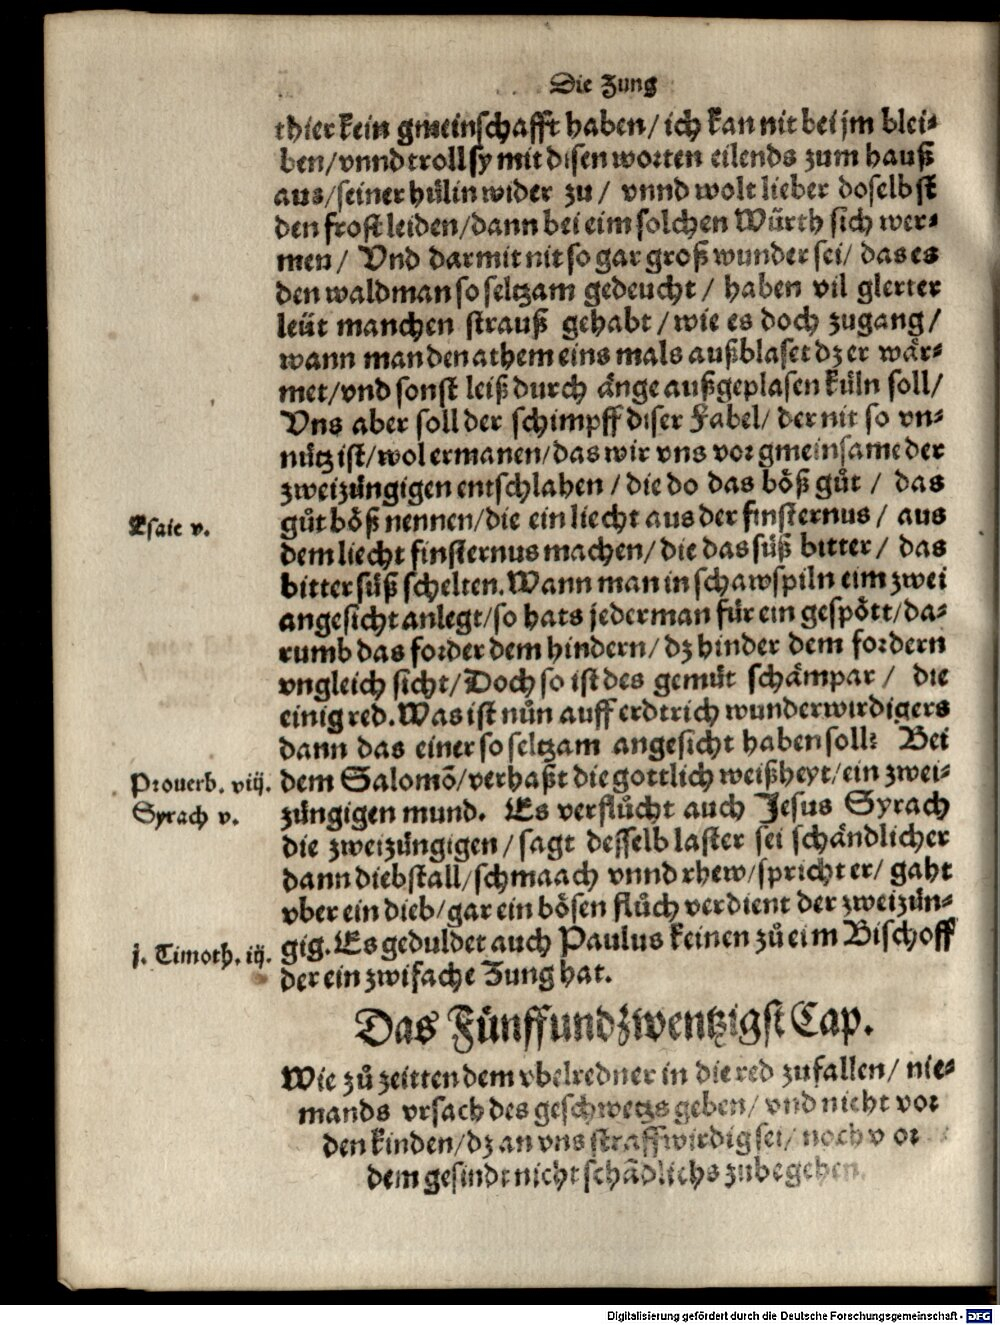 Die Zung
thier kein gmeinschafft haben/ ich kan nit bei jm blei-
ben/vnnd troll sy mit disen worten eilends zum hauß
aus/seiner hülin wider zu/ vnnd wolt lieber doselbst
den frost leiden/dann bei eim solchen Würth sich wer-
men/ Vnd darmit nit so gar groß wunder sei/ das es
den waldman so seltzam gedeucht/ haben vil glerter
leüt manchen strauß gehabt/wie es doch zugang/
wann man den athem eins mals außblaset dz er wär-
met/vnd sonst leiß durch änge außgeplasen küln soll/
Vns aber soll der schimpff diser Fabel/ der nit so vn-
nütz ist/wol ermanen/das wir vns vor gmeinsame der
zweizüngigen entschlahen/die do das böß gůt/ das
Esaie v.
gůt böß nennen/die ein liecht aus der finsternus/ aus
dem liecht finsternus machen/die das süß bitter/ das
bitter süß schelten. Wann man in schawspiln eim zwei
angesicht anlegt/so hats jederman für ein gespött/da-
rumb das forder dem hindern/dz hinder dem fordern
vngleich sicht/Doch so ist des gemüt schämpar/ die
einig red. Was ist nůn auff erdtrich wunderwirdigers
dann das einer so seltzam angesicht haben soll? Bei
Prouerb. viij.
dem Salomõ/verhaßt die gottlich weißheyt/ein zwei-
Syrach v.
züngigen mund. Es verflůcht auch Jesus Syrach
die zweizüngigen/sagt desselb laster sei schändlicher
dann diebstall/schmaach vnnd rhew/spricht er/ gaht
vber ein dieb/gar ein bösen flůch verdient der zweizün-
j. Timoth. iij.
gig. Es geduldet auch Paulus keinen zů eim Bischoff
der ein zwifache Zung hat.
Das Fünffundzwentzigst Cap.
Wie zů zeitten dem vbelredner in die red zufallen/ nie-
mands vrsach des geschwetzs geben/ vnd nicht vor
den kinden/dz an vns straffwirdig sei/ noch vor
dem gesindt nicht schädlichs zubegehen.
Digitalisierung gefördert durch die Deutsche Forschungsgemeinschaft - DFG